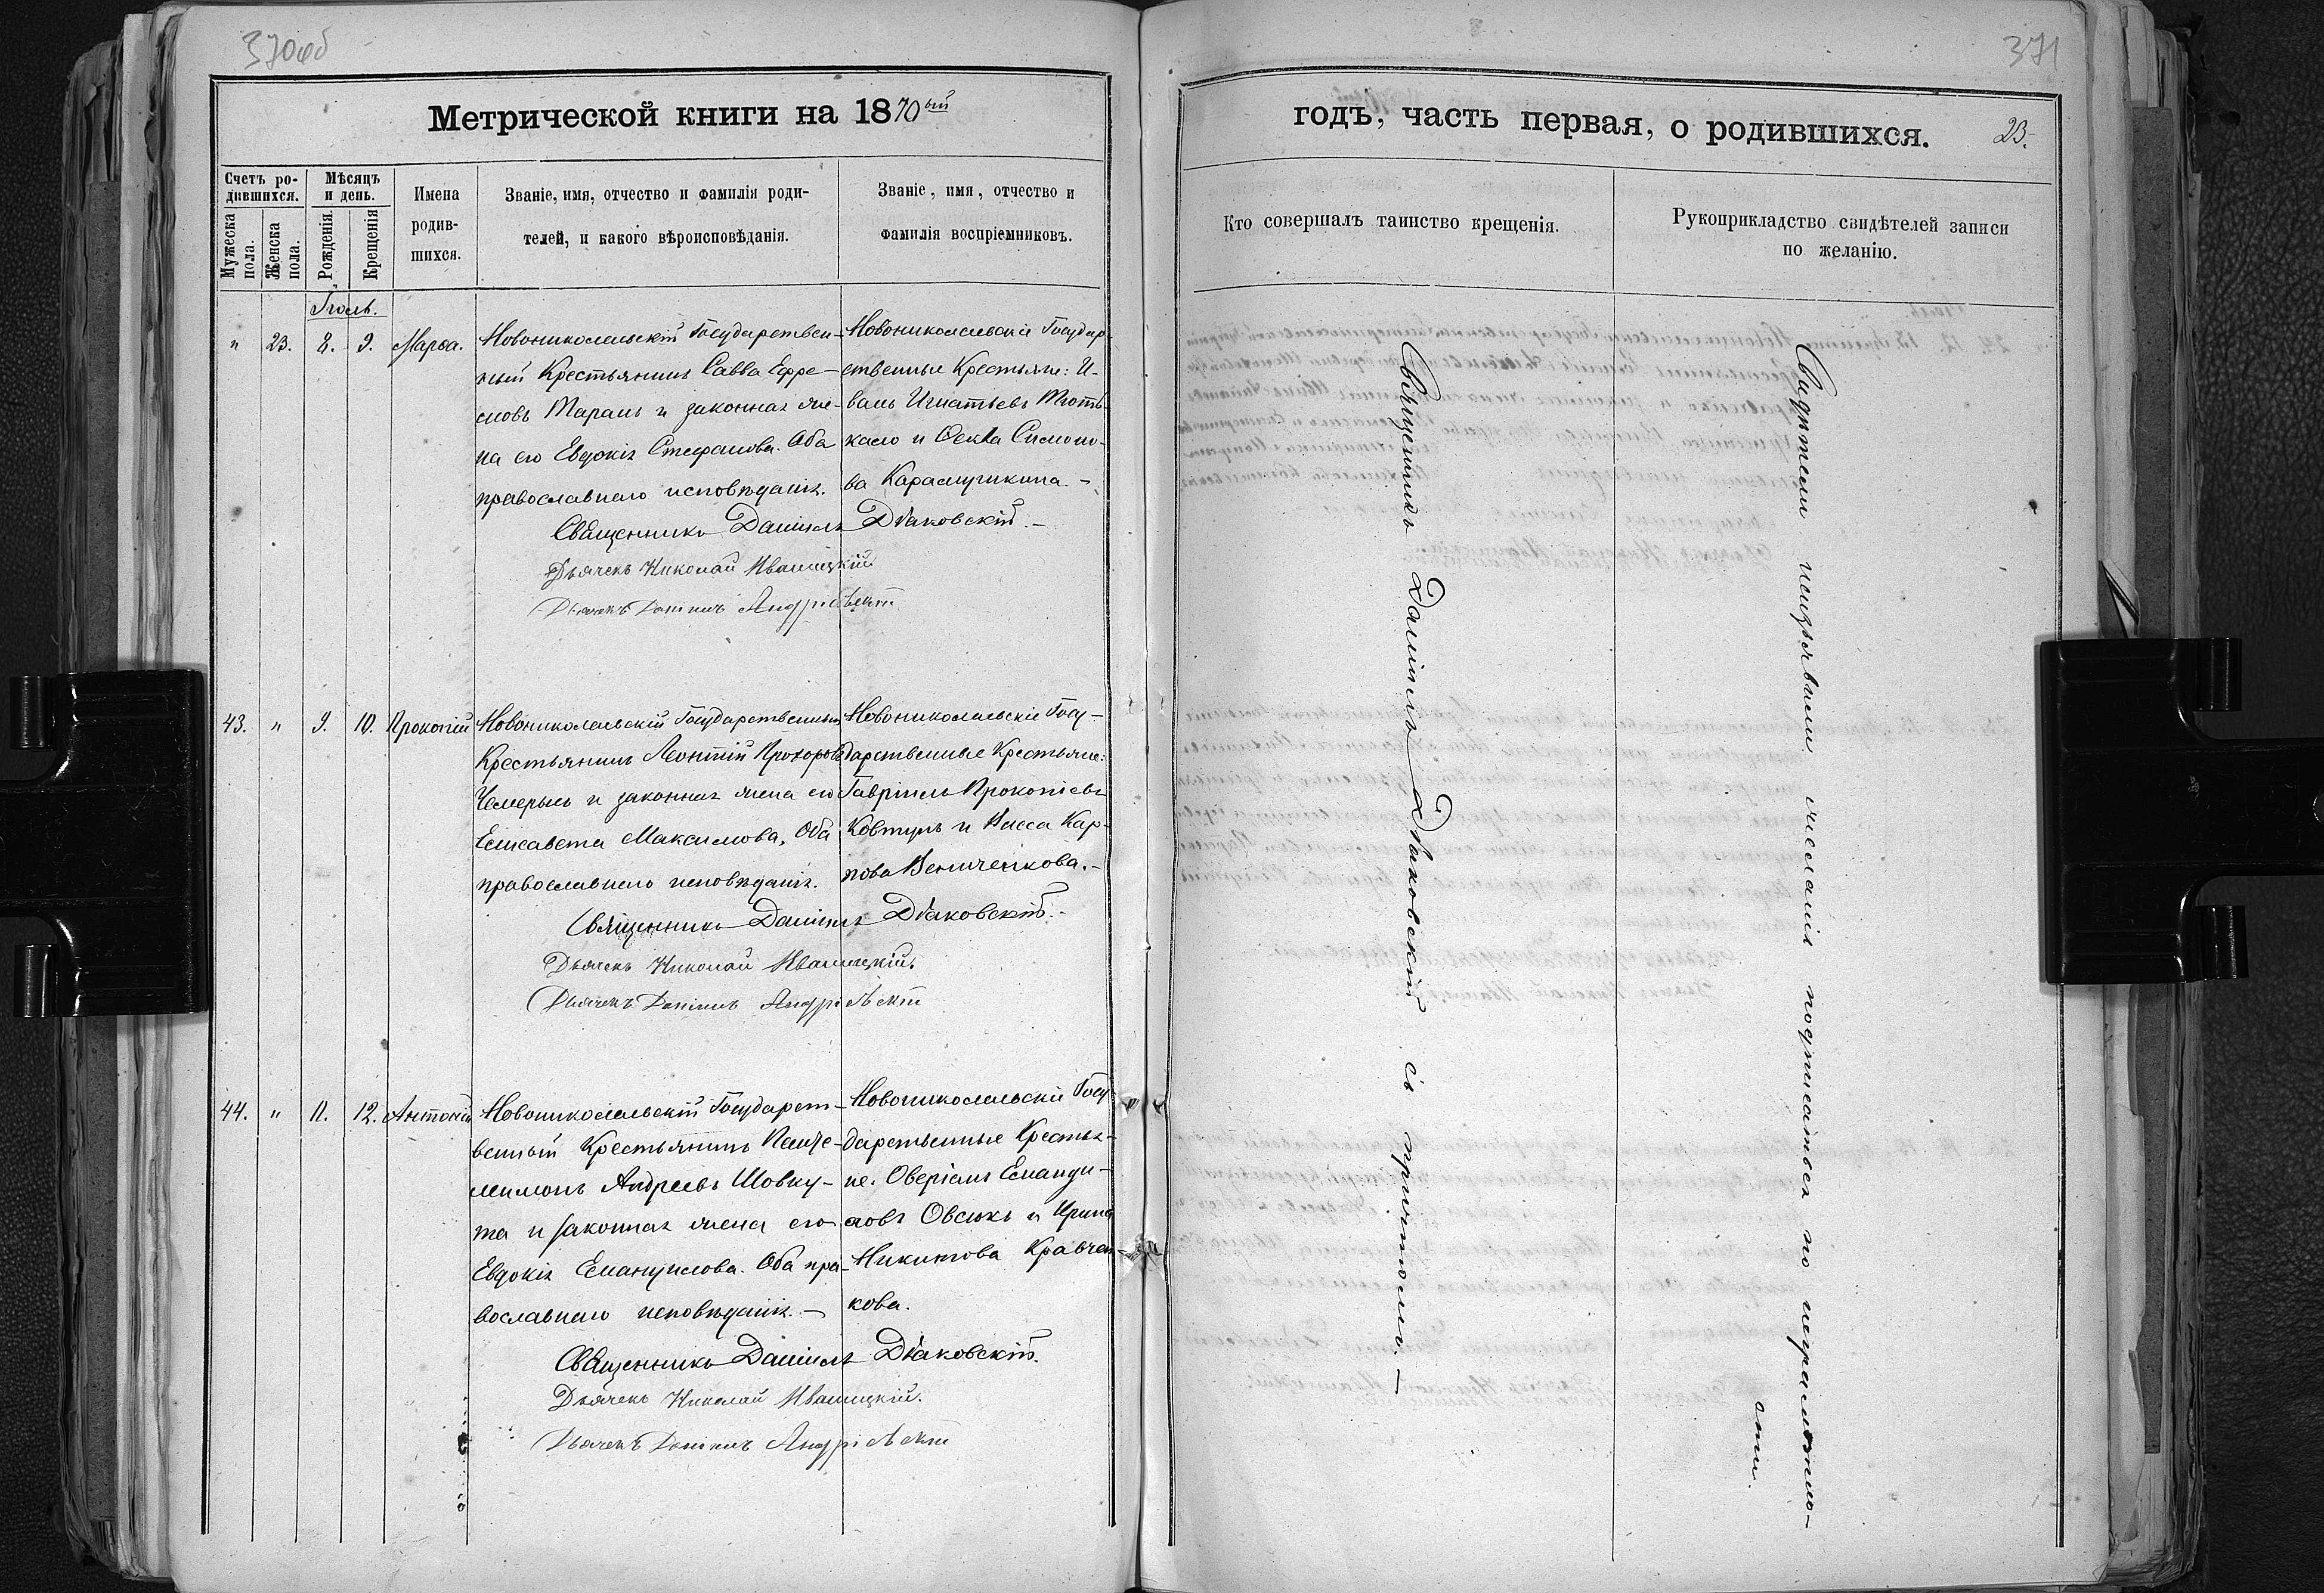 370об
Метрической книги на 1870ый
Счетъ ро-
дившихся.
Мѣсяцъ
и день.
Мужеска
пола.
Женска
пола.
Рожденія.
Крещенія
Имена
родив-
шихся.
Званіе, имя, отчество и фамилія роди-
телей, и какого вѣроисповѣданія.
Званіе, имя, отчество и
фамилія воспріемниковъ.
Іюль.
" 23. 8. 9. Марѳа.
Новониколаевскій Государствен-
ный Крестьянинъ Савва Ефре-
мовъ Таранъ и законная же-
на его Евдокія Стефанова. Оба
православнаго исповѣданія.
Новониколаевскіе Государ-
ственные Крестьяне: И-
ванъ Игнатьевъ
и Ѳекла Симоно-
ва
Священникъ Даніилъ Дьяковскій.
Дьячекъ Николай Иваницкій
Дьячекъ Даніилъ Андріевскій
43. " 9. 10. Прокопій
Новониколаевскій Государственный
Крестьянинъ Леонтій Прохоровъ
Чемерысъ и законная жена его
Елисавета Максимова. Оба
православнаго исповѣданія.
Новониколаевскіе Госу-
дарственные Крестьяне:
Гавріилъ Прокопіевъ
Ковтунъ и Васса Кар-
пова Веничеикова.
Священникъ Даніилъ Дьяковскій.
Дьячекъ Николай Иваницкій.
Дьячекъ Даніилъ Андріевскій
44. " 11. 12. Антоній
Новониколаевскій Государст-
венный Крестьянинъ Панте-
леимонъ Андреевъ Шовку-
та и законная жена его
Евдокія Емануилова. Оба пра-
вославнаго исповѣданія.
Новониколаевскіе Госу-
дарственные Крестья-
не: Оверіанъ Емануи-
ловъ Овсюкъ и Ирина
Никитова Кравчен-
кова.
Священникъ Даніилъ Дьяковскій.
Дьячекъ Николай Иваницкій.
Дьячекъ Даніилъ Андріевскій
371
годъ, часть первая, о родившихся.
23.
Кто совершалъ таинство крещенія.
Рукоприкладство свидѣтелей записи
по желанію.
Священникъ Даніилъ Дьяковскій съ причтомъ.
Свидѣтели неизъявили желанія подписаться по неграмотно-
сти.